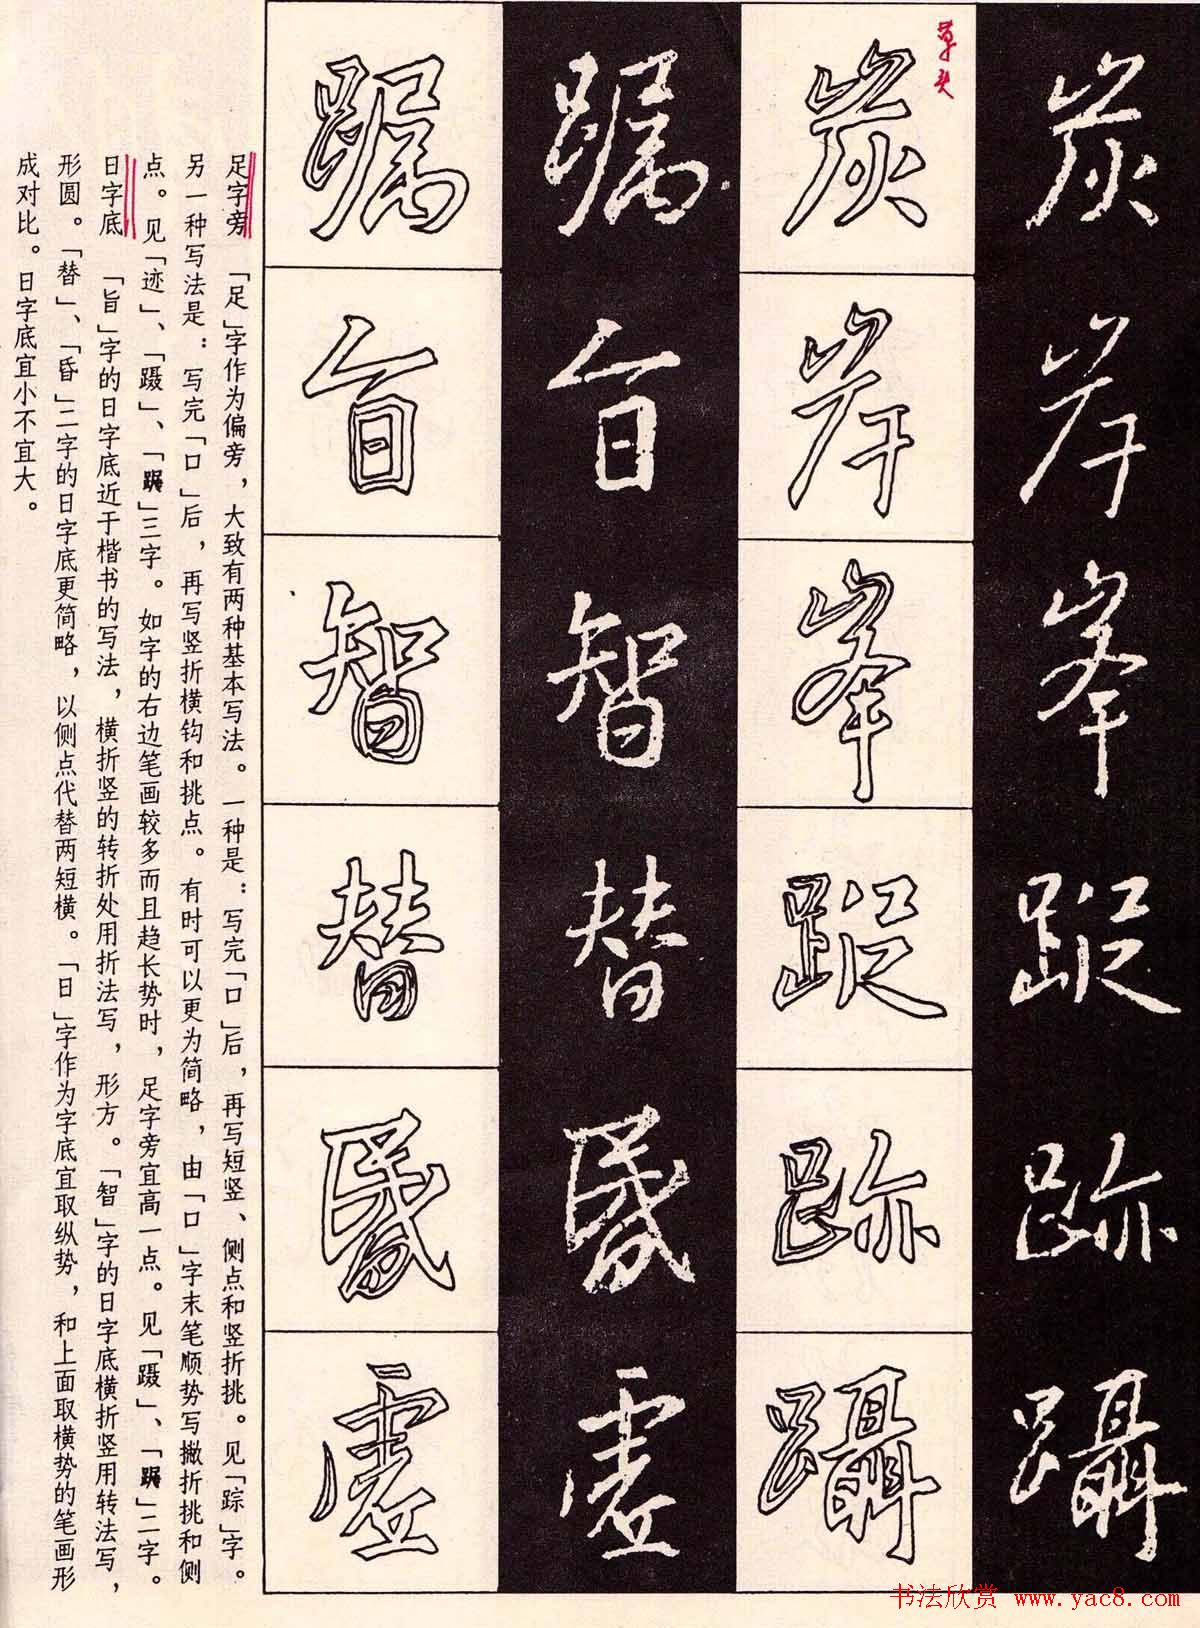 炭岸峯蹤跡躡
炭岸峯蹤跡躡
旨智替昬虛
旨智替昬虛
足字旁 「足」字作为偏旁，大致有两种基本写法。一种是：写完「口」后，再写短竖、侧点和竖折挑。见「踪」字。
另一种写法是：写完「口」后，再写竖折横钩和挑点。有时可以更为简略，由「口」字末笔顺势写撇折挑和侧
点。见「迹」、「蹑」、「」三字。如字的右边笔画较多而且趋长势时，足字旁宜高一点。见「蹑」、「」二字。
日字底 「旨」字的日字底近于楷书的写法，横折竖的转折处用折法写，形方。「智」字的日字底横折竖用转法写，
形圆。「替」、「昏」二字的日字底更简略，以侧点代替两短横。「日」字作为字底宜取纵势，和上面取横势的笔画形
成对比。日字底宜小不宜大。
书法欣赏 www.yac8.com